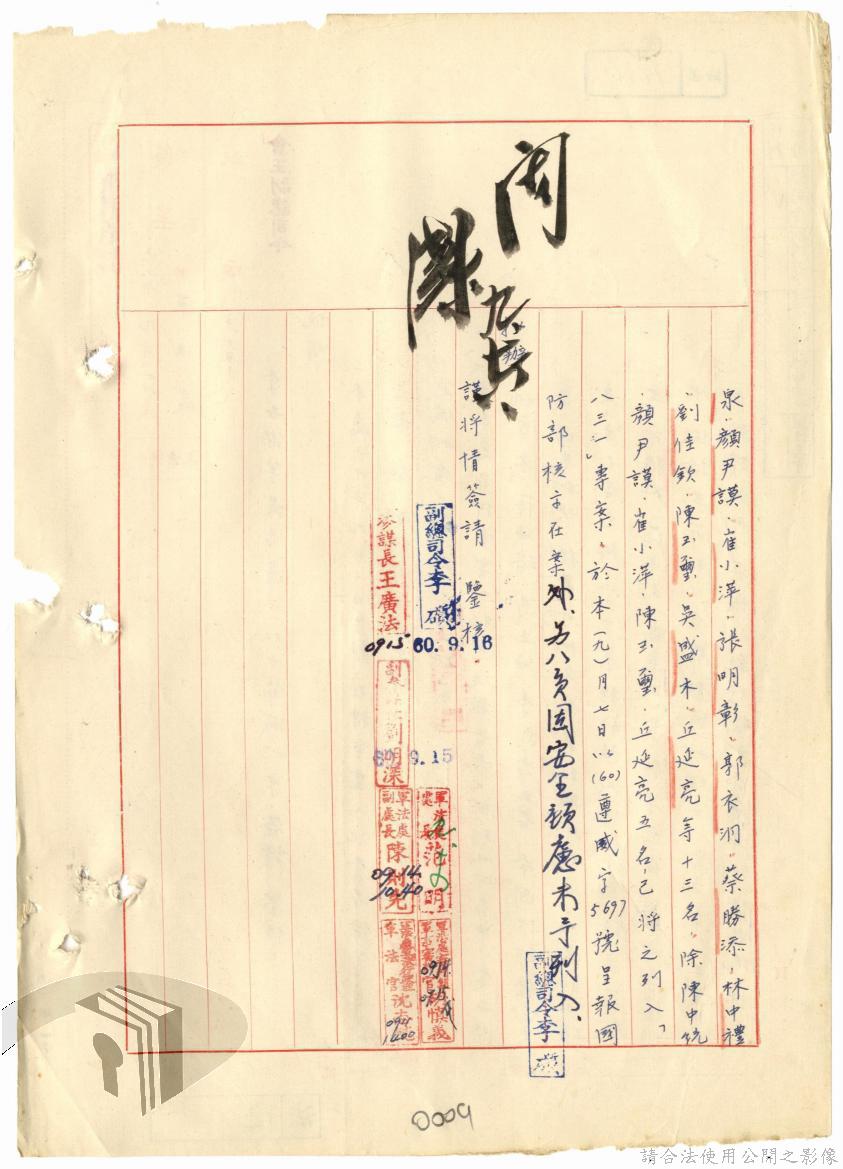 泉、顏尹謨、崔小萍、張明彰、郭衣洞、蔡勝添、林中禮
、劉佳欽、陳玉璽、吳盛木、丘延亮等十三名，除陳中統
、顏尹謨、崔小萍、陳玉璽、丘延亮五名，已將之列入「
八三一」專案，於本(九)月七日以(60)遵威字5697號呈報國
防部核示在案外、另八員因安全顧慮未予列入、
謹將情簽請　鑒核
閱
九、十六
副總司令李
副總司令李
60.9.16
參謀長王廣法
0915
9.15
明深
軍法處
處長范明
軍法處
副處長陳
0914
1040
軍法官沈
1400
0009
請合法使用公開之影像